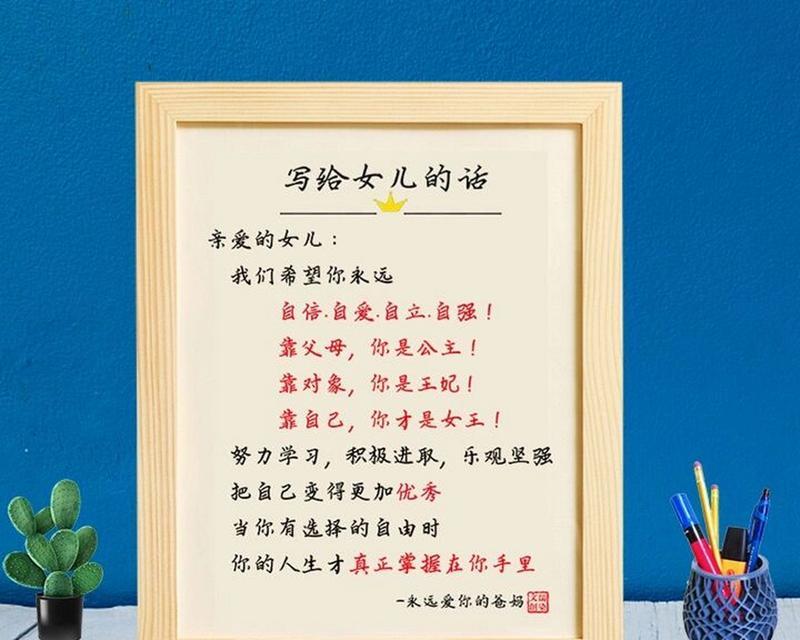 写给女儿的话
亲爱的女儿：
我们希望你永远
自信.自爱.自立.自强！
靠父母，你是公主！
靠对象，你是王妃！
靠自己，你才是女王！
努力学习，积极进取，乐观坚强
把自己变得更加优秀
当你有选择的自由时
你的人生才真正掌握在你手里
-永远爱你的爸妈